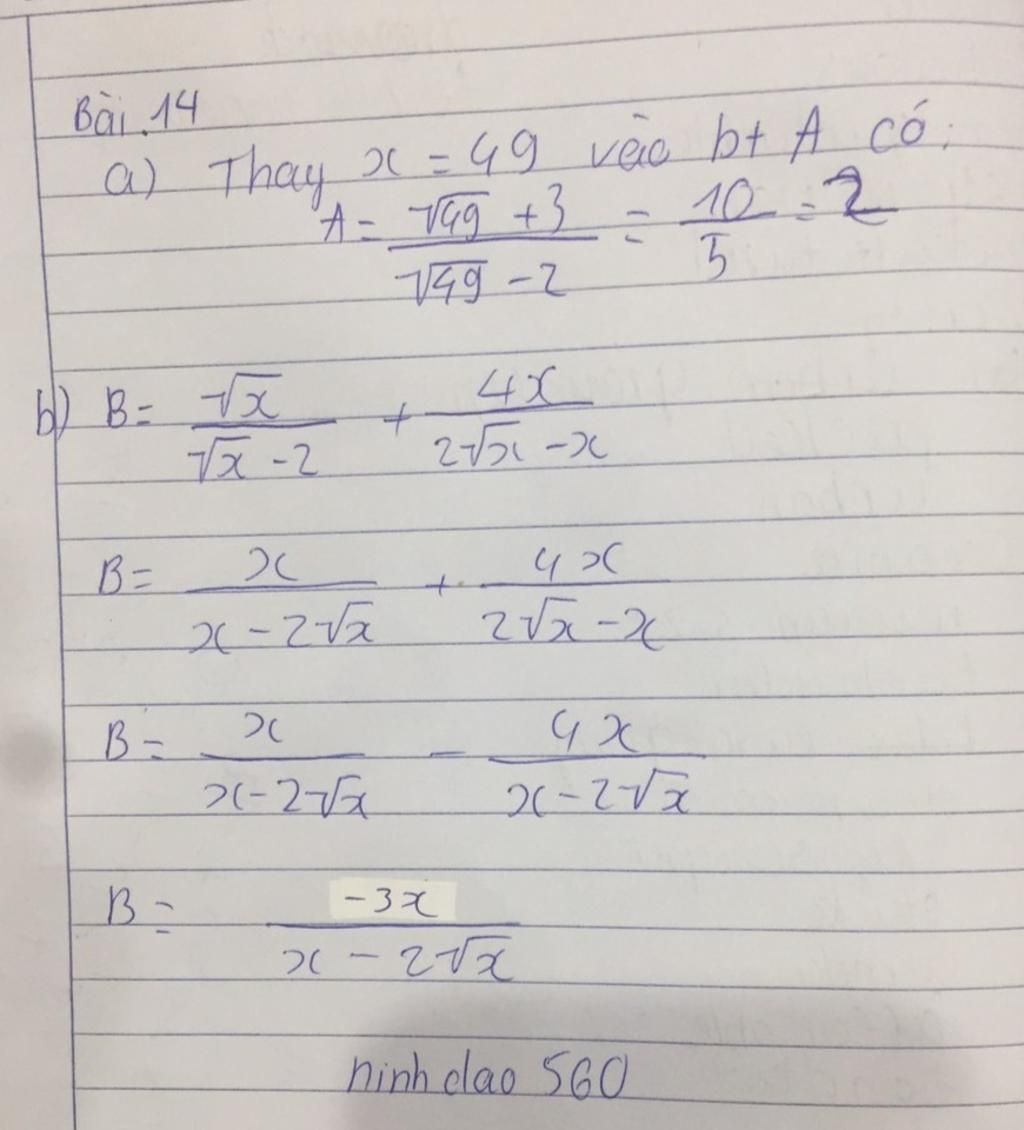 Bài.14
a) Thay x = 49 vào bt A có:
A = (√49 + 3)/(√49 - 2) = 10/5 = 2
b) B = √x/(√x - 2) + 4x/(2√x - x)
B = x/(x - 2√x) + 4x/(2√x - x)
B = x/(x - 2√x) - 4x/(x - 2√x)
B = -3x/(x - 2√x)
ninh dao 5G0